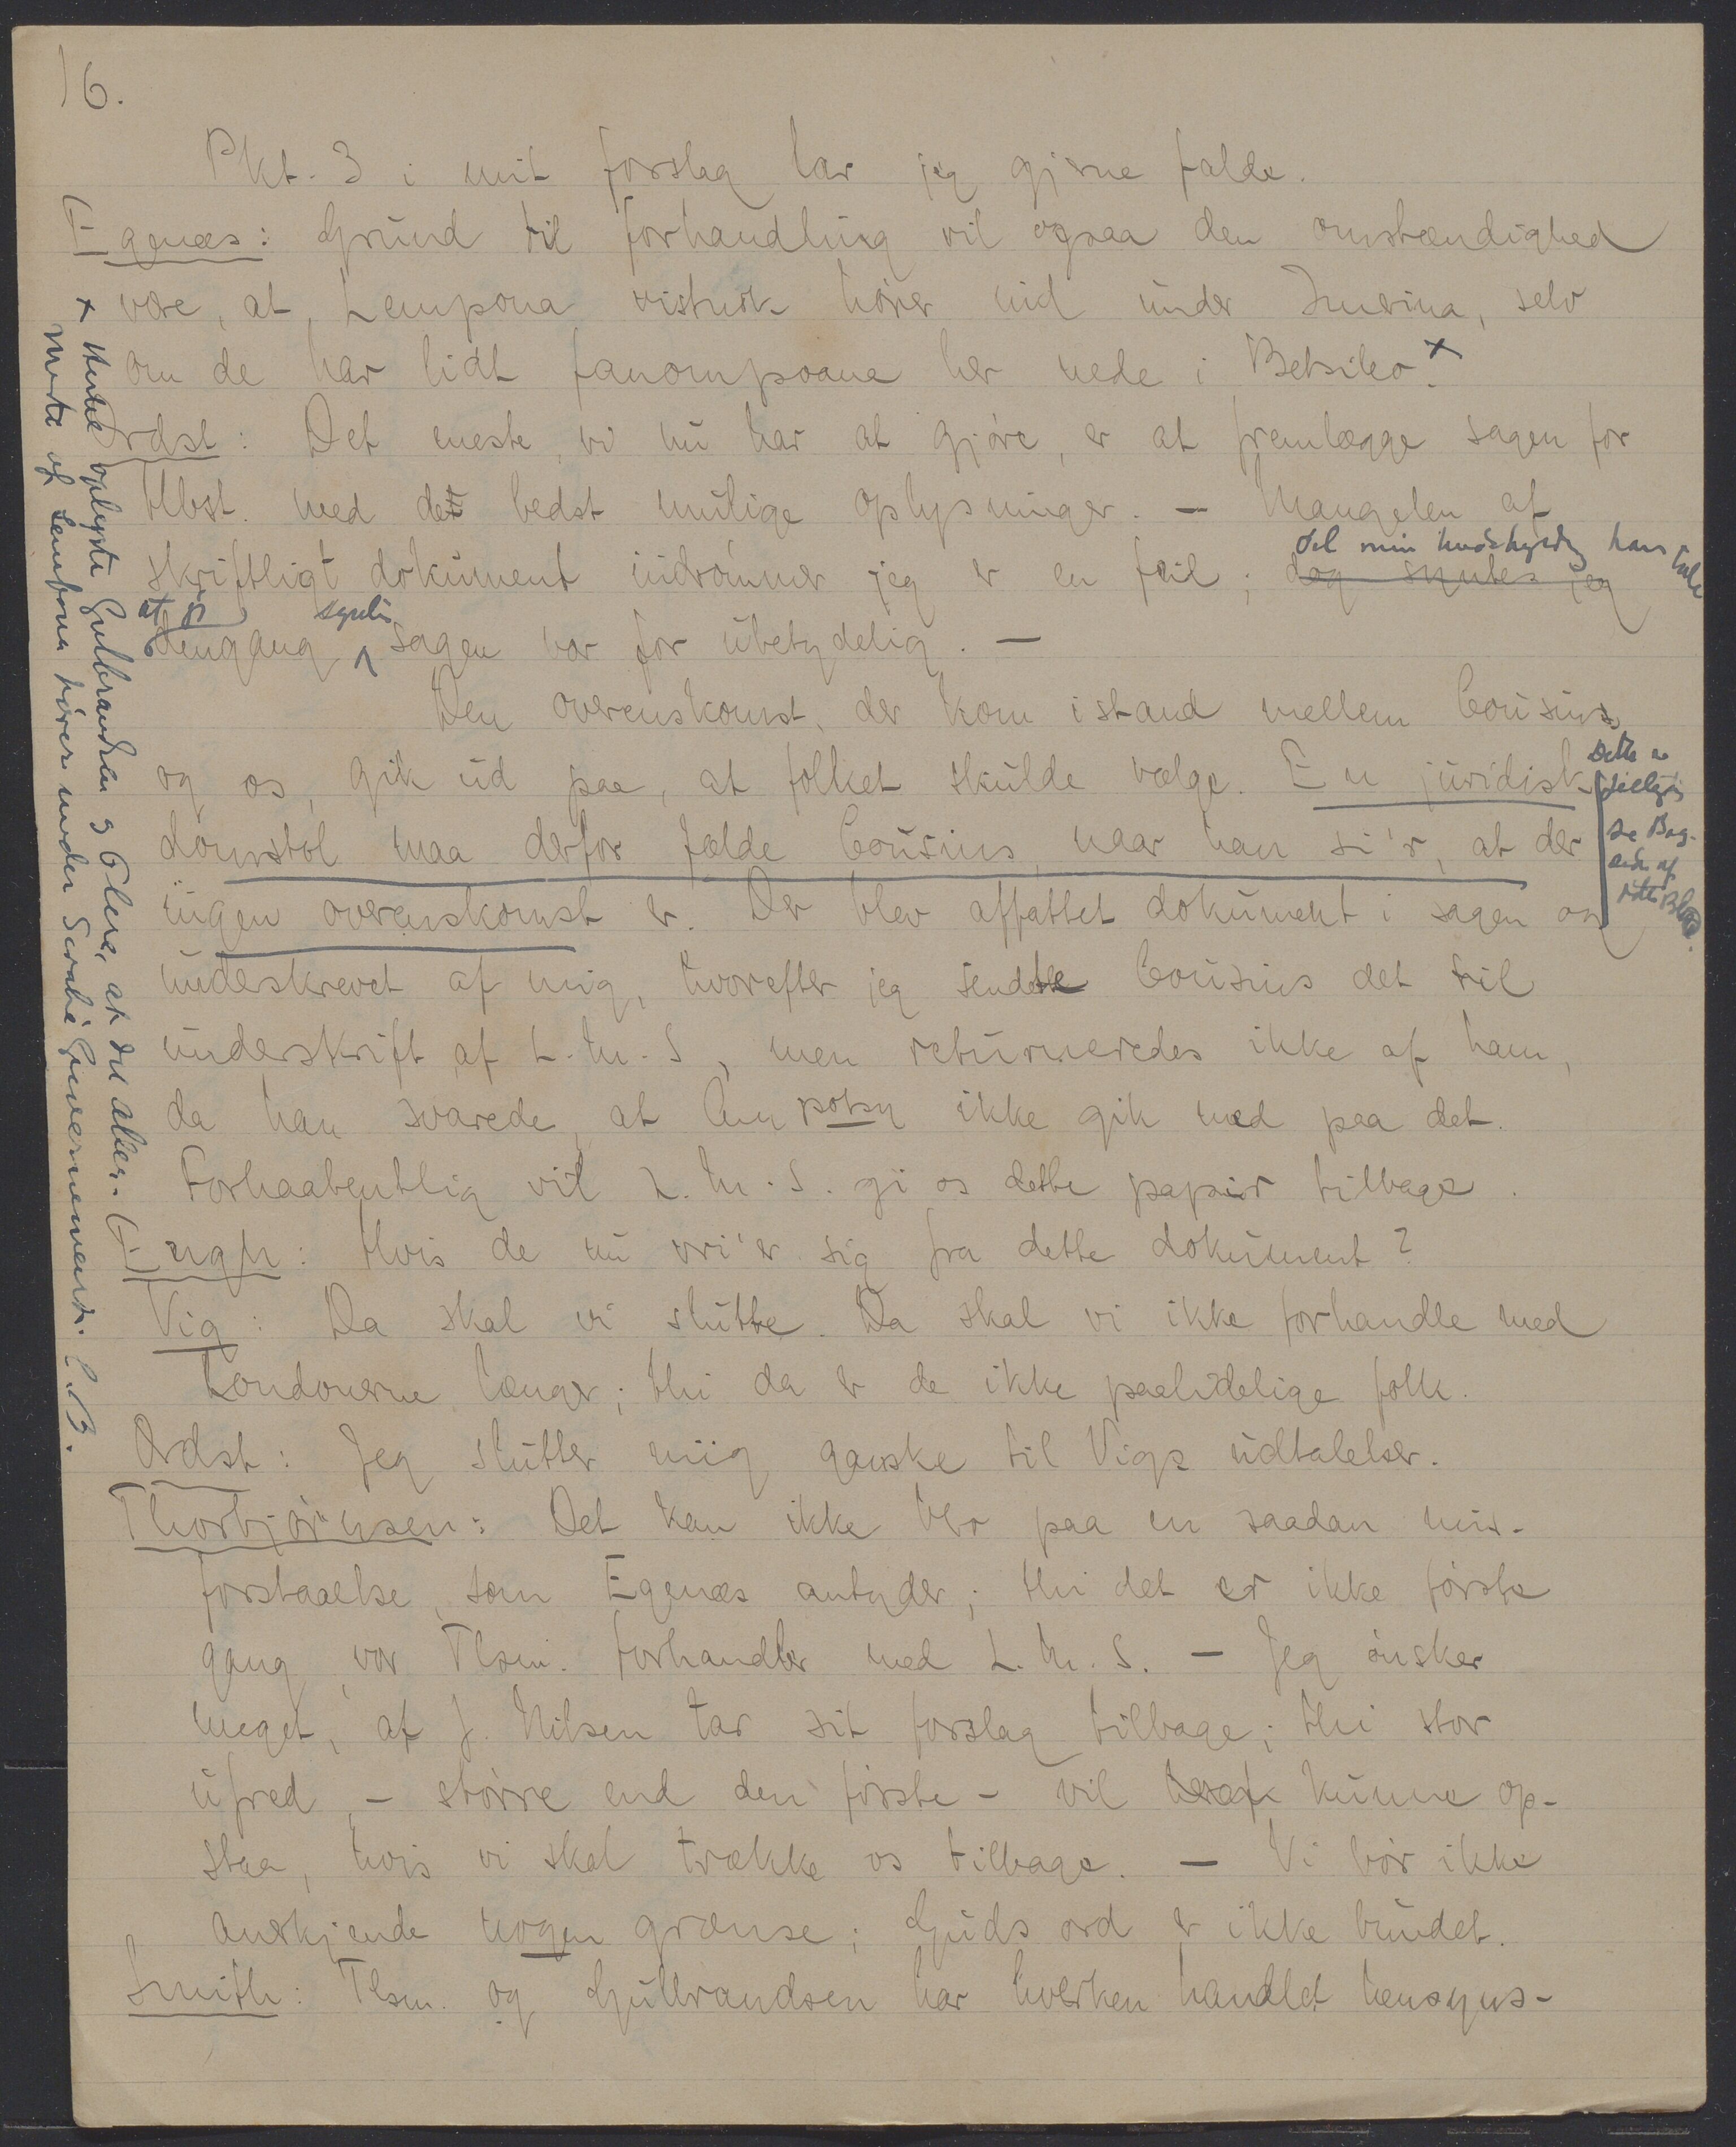 16.
Pkt. 3 i mit forslag lar jeg gjerne falde.
Egenæs: Grund til forhandling vil ogsaa den omstændighed
være, at Lempona vistnok hører ind under Imerina, selv
om de har lidt fanompoana her nede i Betsileo. x
Ordst: Det eneste, vi nu har at gjøre, er at fremlægge sagen for
Hbst. med det bedst mulige oplysninger. — Mangelen af
det min undskyldning kan tale
skriftligt dokument indrømmer jeg er en feil; dog syntes jeg
at jeg syntes
dengang sagen var for ubetydelig. —
Den overenskomst, der kom istand mellem Cousins
og os, gik ud paa, at folket skulde vælge. En juridisk
domstol maa derfor fælde Cousins, naar han si'r, at der
ingen overenskomst er. Der blev affattet dokument i sagen og
underskrevet af mig, hvorefter jeg sendte Cousins det til
underskrift af L.M.S, men returneredes ikke af ham,
da han svarede, at Ampotsy ikke gik med paa det.
Forhaabentlig vil L.M.S. gi os dette papir tilbage.
Engh: Hvis de nu vri'er sig fra dette dokument?
Vig: Da skal vi slutte. Da skal vi ikke forhandle med
Londonerne længer; thi da er de ikke paalidelige folk.
Ordst: Jeg slutter mig ganske til Vigs udtalelser.
Thorbjørnsen: Det kan ikke bero paa en saadan mis-
forstaaelse, som Egenæs antyder; thi det er ikke første
gang, vor Tlsm. forhandler med L.M.S. — Jeg ønsker
meget, at J. Nilsen tar sit forslag tilbage; thi stor
ufred, — større end den første — vil kunne op-
staa, hvis vi skal trække os tilbage. — Vi bør ikke
anerkjende nogen grænse; Guds ord er ikke bundet.
Smith: Tlsm. og Gulbrandsen har hverken handlet hensyns-
Dette er
feilagtig
se Bag-
siden af
dette Blad.
x Hertil oplyste Gulbrandsen og Flere, at det aller-
meste af Lempona hører under Sirabe Guvernement. C.B.